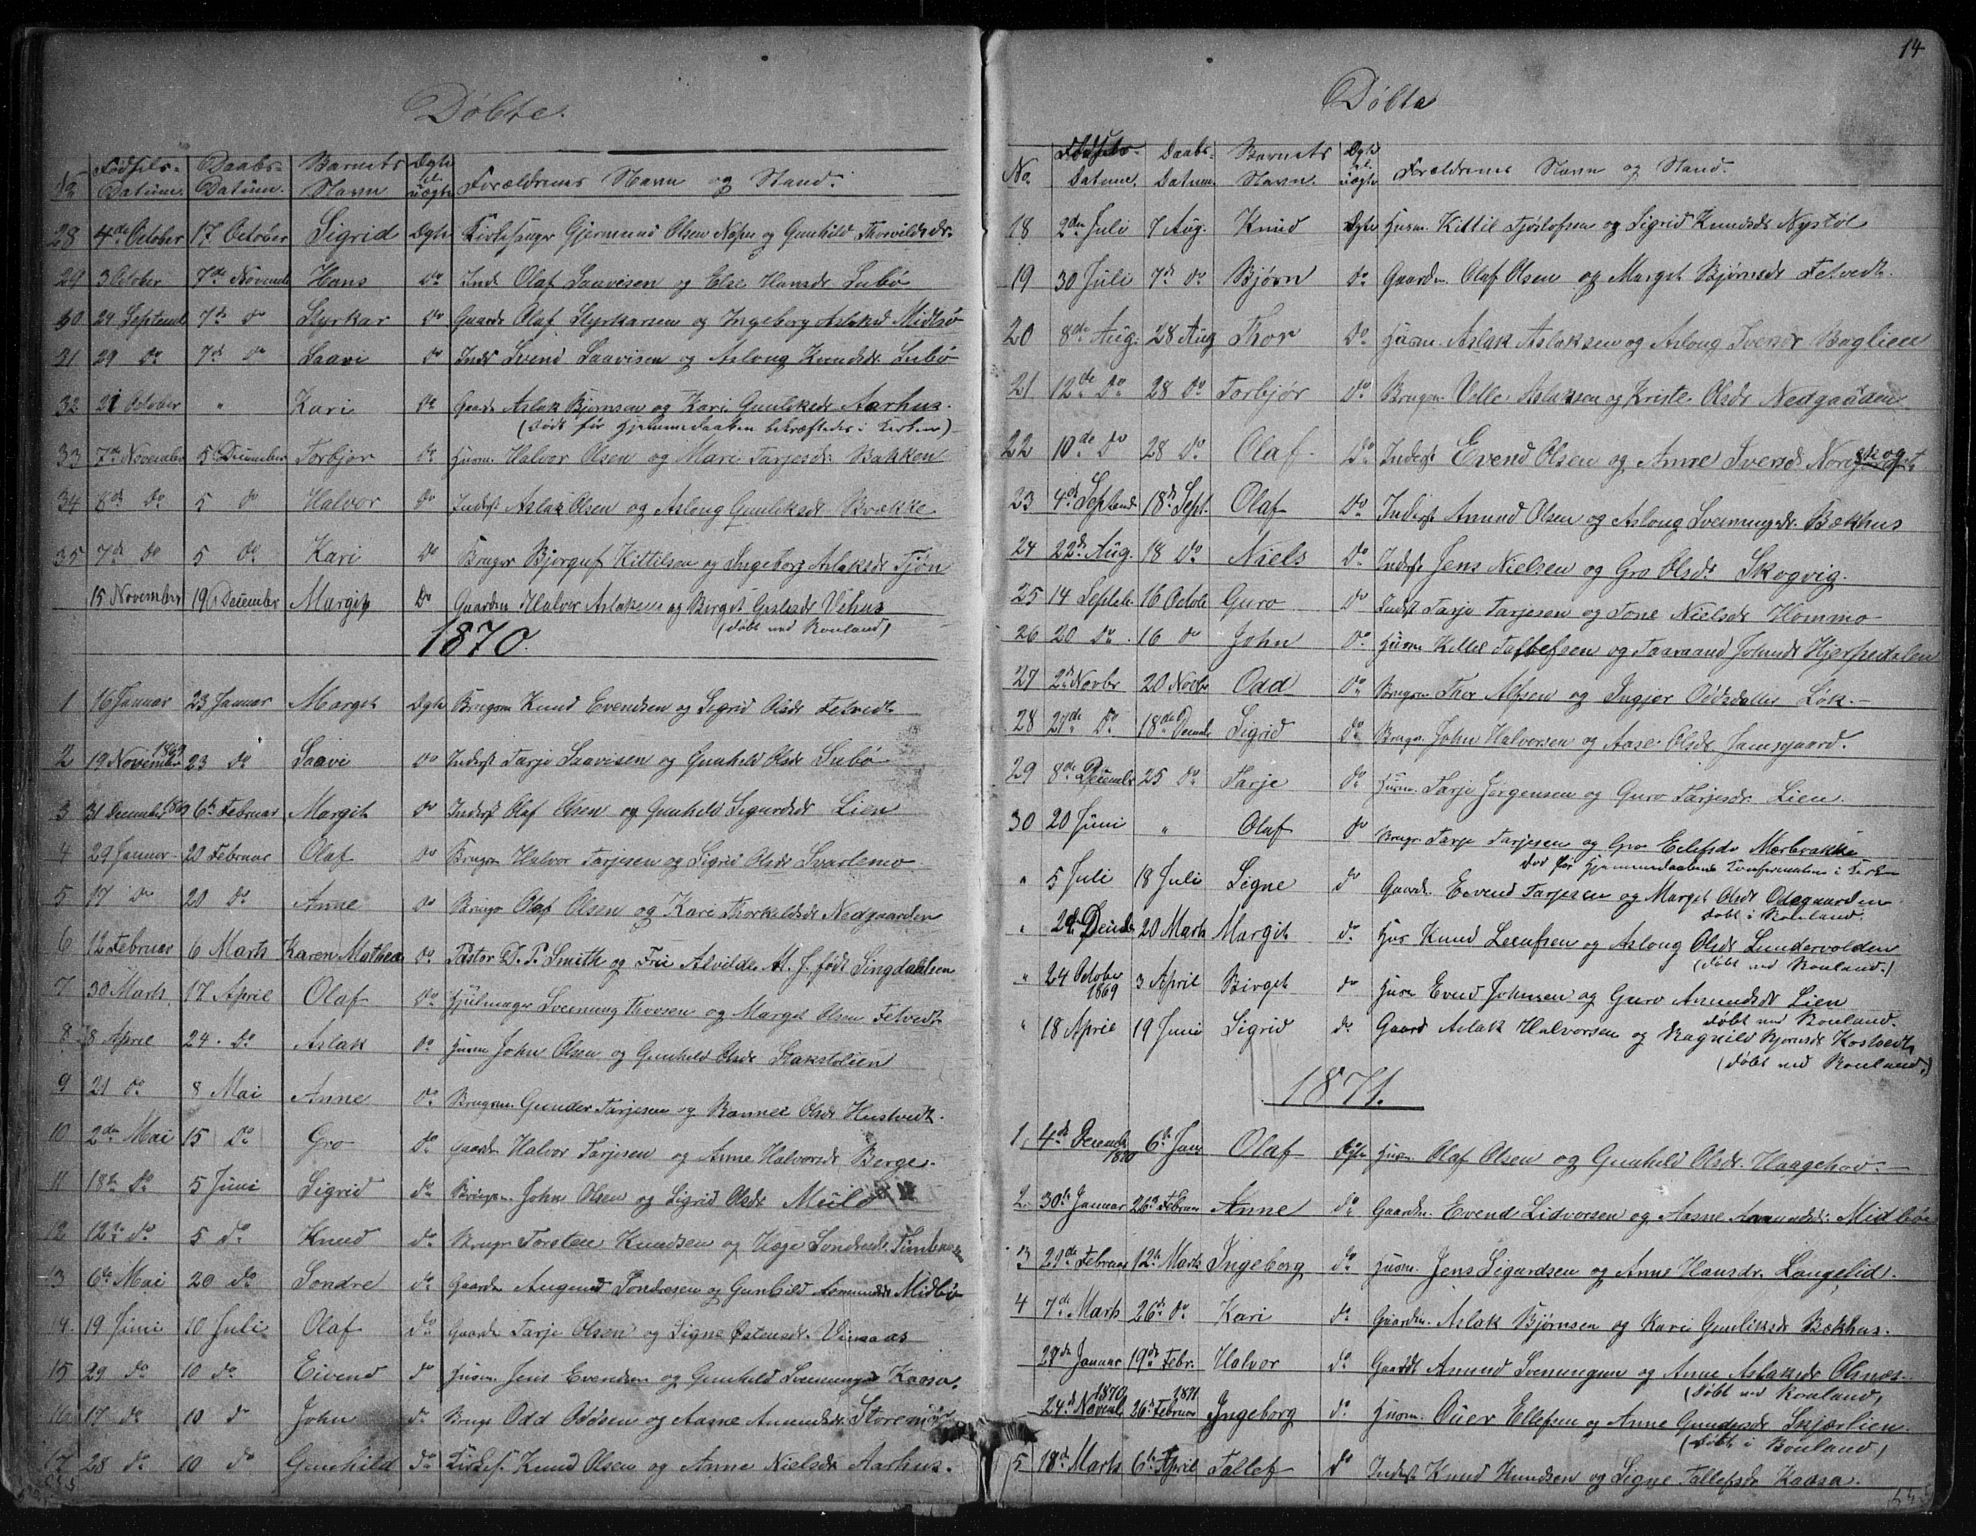 Döbte.
No
Fødsels-
Datum.
Daabs-
Datum.
Barnets
Navn
Dgte
el.
uægte
Forældrenes Navn og Stand.
28 4de October 17 October Sigrid Dgte Kirkesanger Gjermund Olsen og Gunhild Thorvildsdr.
29 3 October 7de Novemb Hans do Inds Olaf Saavisen og Else Hansdr Subø
30 24 Septemb 7de do Styrkar do Gaardr Olaf Styrkarsen og Ingeborg Aslaksd Midbø
31 29 do 7de do Saavi do Inds Svend Saavisen og Aslong Knudsdr Subø
32 21 October " Kari do Gaardr Aslak Bjørnsen og Kari Gunliksdr Aarhus.
(død før Hjemmedaaben bekræftedes i Kirken)
33 7de November 5 December Torbjør do Husm. Halvor Olsen og Mari Tarjesdr Bakken
34 8de do 5 do Halvor do Inderst Aslak Olsen og Aslong Gunliksdr Brække
35 7de do 5 do Kari do Bruger Bjørguf Kittilsen og Ingeborg Aslaksdr Tjøn
15 November 19 December Margit Do Gaardm Halvor Aslaksen og Birget Gislesdr Vehus
(døbt ved Rouland)
1870.
1 16 Januar 23 Januar Margit Dgte Brugsm Knud Evendsen og Sigrid Olsdr Fetvedt
2 19 November 1869 23 do Saavi do Inderst Tarje Saavisen og Gunhild Olsdr Subø
3 31 December 1869 6te Februar Margit do Inderst Olaf Olsen og Gunhild Sigurdsdr Lien
4 29 Januar 20 Februar Olaf do Brugsm Halvor Tarjesen og Sigrid Olsdr Svartemo
5 17 do 20 do Anne do Brugs Olaf Olsen og Kari Thorkildsdr Nedgaarden
6 12 Februar 6 Marts Karen Mathea do Pastor D. P. Smith og Fru Alvilde M. J. født Singdahlsen
7 30 Marts 17 April Olaf do Hjulmager Svenung Thorsen og Margit Olsen Fetvedt
8 8 April 24. do Aslak do Husm John Olsen og Gunhild Olsdr Stakstølien
9 21 do 8 Mai Anne do Brugsm. Gunder Tarjesen og Rannei Olsdr Hustvedt.
10 2den Mai 15 do Gro do Gaardr Halvor Tarjesen og Anne Halvorsdr Berge.
11 18de do 5 Juni Sigrid do Brugsm. John Olsen og Sigrid Olsdr Mulo
12 12te do 5 do Knud do Brugr Torsten Knudsen og Hæge Sondresdr
13 6te Mai 20 do Sondre do Gaardm Augund Sondresen og Gunhild Amundsdr Midbø
14. 19 Juni 10 Juli Olaf do Gaardm Tarje Olsen og Signe Østensdr Vinaas
15 29 do 10 do Eivend do Husm Jens Evendsen og Gunhild Svenningsd Kaasa.
16 17 do 10 do John do Brugs Odd Odosen og Aasne Amundsdr
17 28 do 10 do Gunhild do Knud Olsen og Anne Nielsdr Aarhus.
14
Döbte
No.
Fødsels-
Datum.
Daabs-
Datum.
Barnets
Navn.
Dgte
el.
uægte
Forældrenes Navn og Stand.
18 2den Juli 7 Aug. Knud Dgte Husm. Kittil Tjøstolfsen og Sigrid Knudsdr Nystøl
19 30 Juli 7de do Bjørn do Gaardm. Olaf Olsen og Margit Bjørnsdr Fetvedt.
20 8de Aug. 28 Aug Thor Do Husm. Aslak Aslaksen og Aslong Svensdr Baglien
21 12te do 28 do Torbjør do Brugsm Velle Aslaksen og Kristi Olsdr Nedgaarden
22 10de do 28 do Olaf Do Inderst Evend Olsen og Anne Iversdr
23 4de Septemb 18de Sept. Olaf Do Inderst Amund Olsen og Aslong Svenningsdr. Bækhus
24 22de Aug. 18 do Niels Do Inderst Jens Nielsen og Gro Olsdr Skogvig.
25 14 Septeb 16 Octob Guro do Inderst Tarje Tarjesen og Tone Nielsdr Hommo
26 20 do. 16 do John Do Husm Kittil Tallefsen og Taaraand Johnsdr Hjerpedalen
27 2de Novbr 20 Novbr Odd Do Brugsm Thor Alfsen og Ingjer Oddsdatter Løk.
28 27de do 18de Decemb Sigrid Do Brugr John Halvorsen og Aase Olsdr Jamsgaard.
29 8de Decemb 25 do Tarje do Husm. Tarje Jørgensen og Guro Tarjesdr. Lien.
30 20 Juni " Olaf do Brugr Tarje Tarjesen og Gro Eilefsdr Mærbrække
død før Hjemmedaabens Confirmation i Kirken
" 5 Juli 18 Juli Signe do Gaardr Eivend Tarjesen og Margit Olsdr Odegaarden
døbt i Rouland.
" 2de Decemb 20 Marts Margit do Hus Knud Leeufsen og Aslong Olsdr Sundervolden
(døbt ved Rouland.)
" 24 October 1869 3 April Birget do Husm Evend Johnsen og Guro Amundsdr Lien
døbt ved Rouland.
" 18 April 19 Juni Sigrid do Gaard Aslak Halvorsen og Ragnild Bjornsdr Kostvedt
(døbt ved Rouland.)
1871.
1. 4de Decemb 1870 6te Janr Olaf Dgte Husm. Olaf Olsen og Gunhild Olsdr. Haagehov
2. 30te Januar 26de Februar Anne do Gaardm. Evend Lidvorsen og Aasne Amundsdr Midbøe
3 21de Februar 12te Marts Ingeborg do Husm. Jens Sigurdsen og Anne Hansdr. Langelid.
4 7de Marts 26de do Kari do Gaardm. Aslak Bjørnsen og Kari Gunliksdr Bækhus.
27de Januar 19de Febr. Halvor do Gaardr Amund Svenungsen og Anne Aslaksdr Olsnes.
(døbt ved Rouland,
24de Novemb 1870 26de Februar 1871 Ingeborg do Husm. Ouer Ellefsen og Anne Gundersdr Skjærlien
(døbt i Rouland,)
5 18de Marts 6te April Tallef do Inderst Knud Knudsen og Signe Tallefsdr Kaasa.